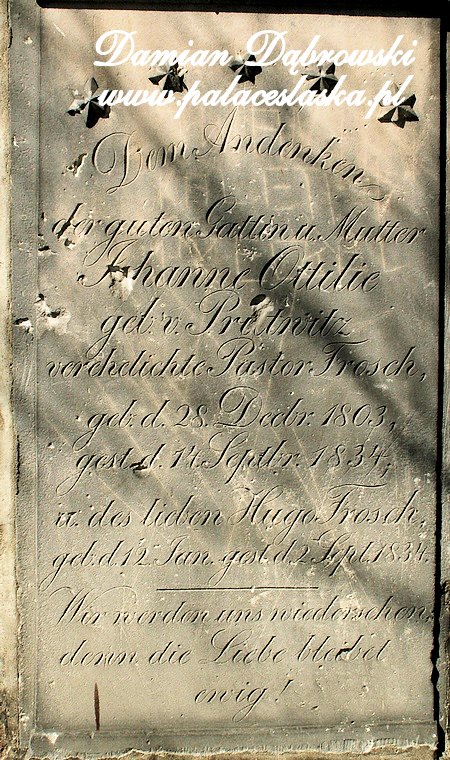 Damian Dąbrowski
www.palaceslaska.pl
Dem Andenken
der guten Gattin u. Mutter
Johanne Ottilie
geb: v. Prittwitz
verehelichte Pastor Frosch,
geb: d. 28. Decbr. 1803,
gest. d. 14. Septbr. 1834,
u. des lieben Hugo Frosch,
geb: d. 12. Jan. gest. d. 2. Sept. 1834.
Wir werden uns wiedersehen,
denn die Liebe bleibet
ewig!